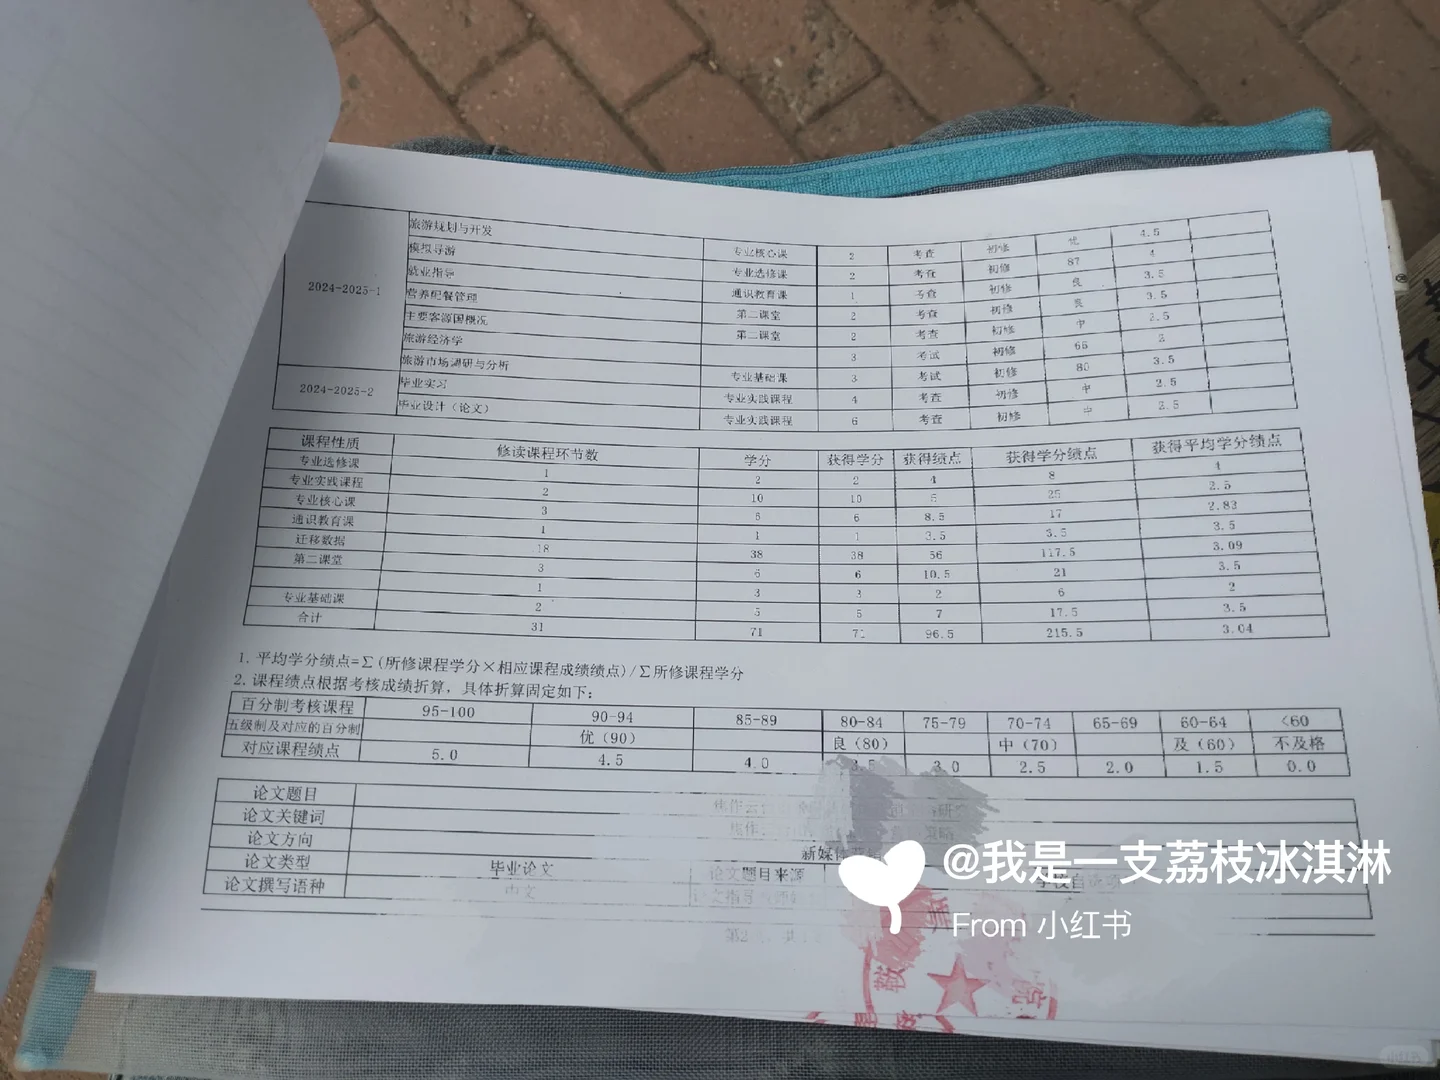 2024-2025-1
旅游规划与开发 专业核心课 2 考查 初修 优 4.5
模拟导游 专业选修课 2 考查 初修 87 4
就业指导 通识教育课 1 考查 初修 良 3.5
营养配餐管理 第二课堂 2 考查 初修 良 3.5
主要客源国概况 第二课堂 2 考查 初修 中 2.5
旅游经济学 3 考试 初修 66 2
旅游市场调研与分析 专业基础课 3 考试 初修 80 3.5
2024-2025-2
毕业实习 专业实践课程 4 考查 初修 中 2.5
毕业设计（论文） 专业实践课程 6 考查 初修 中 2.5
课程性质 修读课程环节数 学分 获得学分 获得绩点 获得学分绩点 获得平均学分绩点
专业选修课 1 2 2 4 8 4
专业实践课程 2 10 10 5 25 2.5
专业核心课 3 6 6 8.5 17 2.83
通识教育课 1 1 1 3.5 3.5 3.5
迁移数据 18 38 38 56 117.5 3.09
第二课堂 3 6 6 10.5 21 3.5
1 3 3 2 6 2
专业基础课 2 5 5 7 17.5 3.5
合计 31 71 71 96.5 215.5 3.04
1. 平均学分绩点=∑(所修课程学分×相应课程成绩绩点)/∑所修课程学分
2. 课程绩点根据考核成绩折算，具体折算固定如下：
百分制考核课程 95-100 90-94 85-89 80-84 75-79 70-74 65-69 60-64 <60
五级制及对应的百分制 优（90） 良（80） 中（70） 及（60） 不及格
对应课程绩点 5.0 4.5 4.0 3.5 3.0 2.5 2.0 1.5 0.0
论文题目
论文关键词
论文方向 新媒体
论文类型 毕业论文 论文题目来源
论文撰写语种 中文
@我是一支荔枝冰淇淋
From 小红书
院
小红书